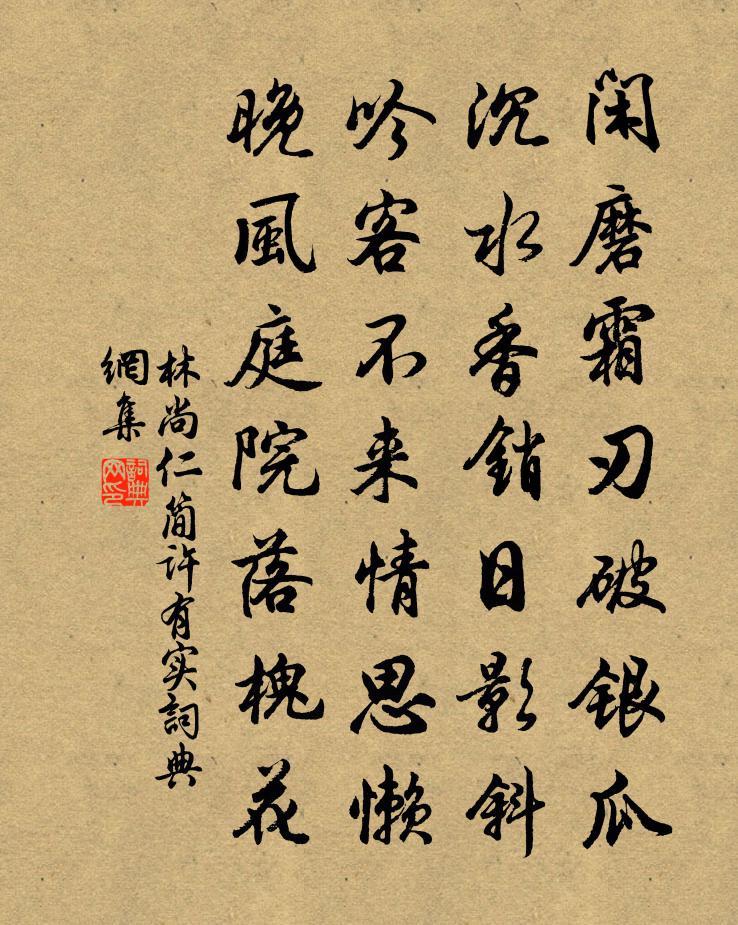 闲磨霜刃破銀瓜
沉水香銷日影斜
吟客不来情思懒
晚風庭院落槐花
林尚仁简许有实詞典
網集
詞典
网印